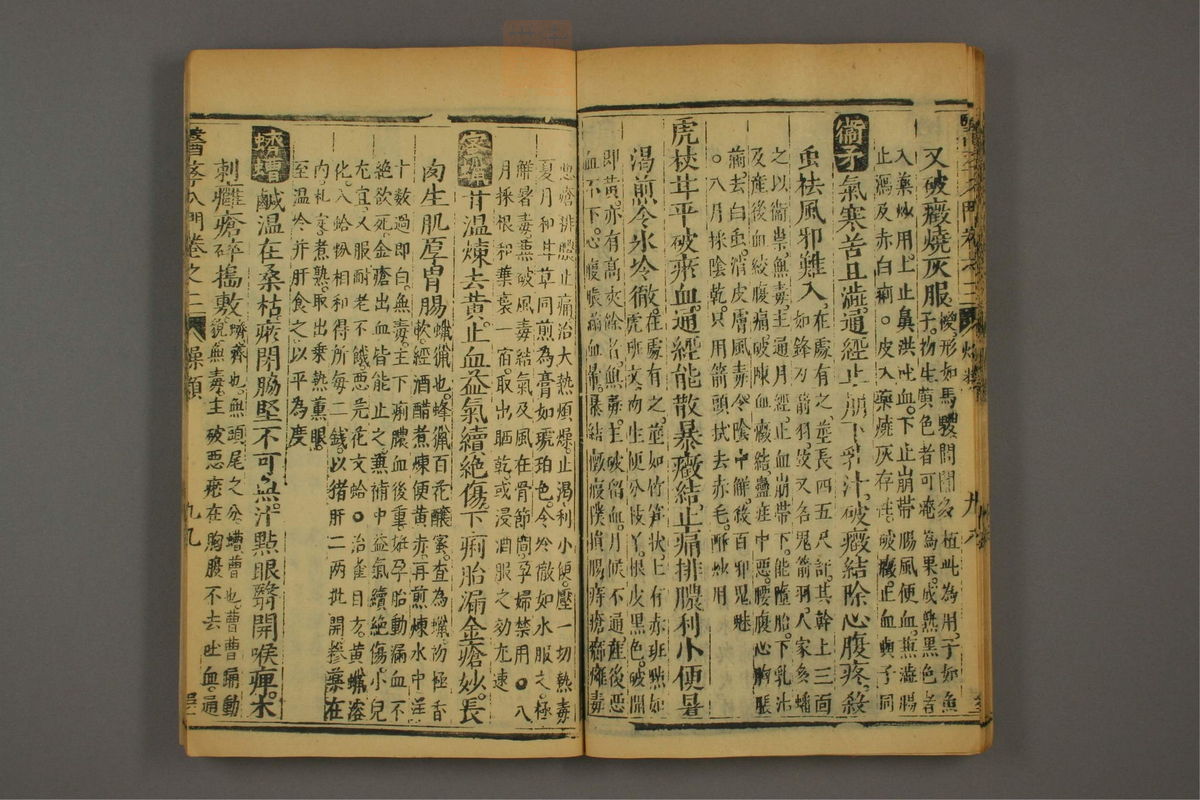 又破癥燒灰服
子初生黃色者可淹為果成熟黑色者
入藥炒用上止鼻洪吐血下止崩帶腸風便血無澁腸
止瀉及赤白痢○皮入藥燒灰存性破癥止血與子同
衛矛氣寒苦且澁通經止崩下乳汁破癥結除心腹疼殺
虫祛風邪難入在處有之莖長四五尺許其幹上三面
如鋒刃箭羽故又名鬼箭羽人家多燔
之以衛祟無毒主通月經止血崩帶下能墮胎下乳汁
及產後血絞腹痛破陳血癥結蠱疰中惡腰腹心胸脹
滿去白虫消皮膚風毒令陰中解殺百邪鬼魅
○八月採陰乾只用箭頭拭去赤毛酥炒用
虎杖甘平破瘀血通經能散暴癥結止痛排膿利小便暑
渴煎令冰冷徹在處有之莖如竹筍狀上有赤班點如
虎班文而生便分枝丫根皮黑色破開
即黃亦有高丈餘者無毒主破留血月候不通產後惡
血不下心腹脹滿血暈暴結癥瘕撲損腸痔瘡癤癰毒
惣瘡排膿止痛治大熱煩燥止渴利小便壓一切熱毒
夏月和甘草同煎為膏如琥珀色令冷徹如水服之極
解暑毒無破風毒結氣及風在骨節間孕婦禁用○八
月採根和葉裹一宿取出晒乾或浸酒服之効尤速
蜜蠟甘溫煉去黃止血益氣續絕傷下痢胎漏金瘡妙長
肉生肌厚胃腸蠟獵也蜂獵百花釀蜜查為蠟初極香
軟經酒醋煮煉便黃赤再煎煉水中烊
十數過即白無毒主下痢膿血後重妊孕胎動漏血不
絕欲死金瘡出血皆能止之無補中益氣續絕傷小兒
尤宜又服耐老不饑惡芫花文蛤○治雀目方黃蠟溶
化入蛤粉相和得所每二錢以猪肝二兩批開摻藥在
內札定煮熟取出乘熱薰眼
至溫冷并肝食之以平為度
蠐螬鹹溫在桑枯瘀閉脇堅不可無汁點眼翳開喉痺末
刺癰瘡碎搗敷蠐齊也無頭尾之分螬曹也曹曹蠕動
貌無毒主破惡瘀在胸腹不去吐血通
卷之二
燥類
九九